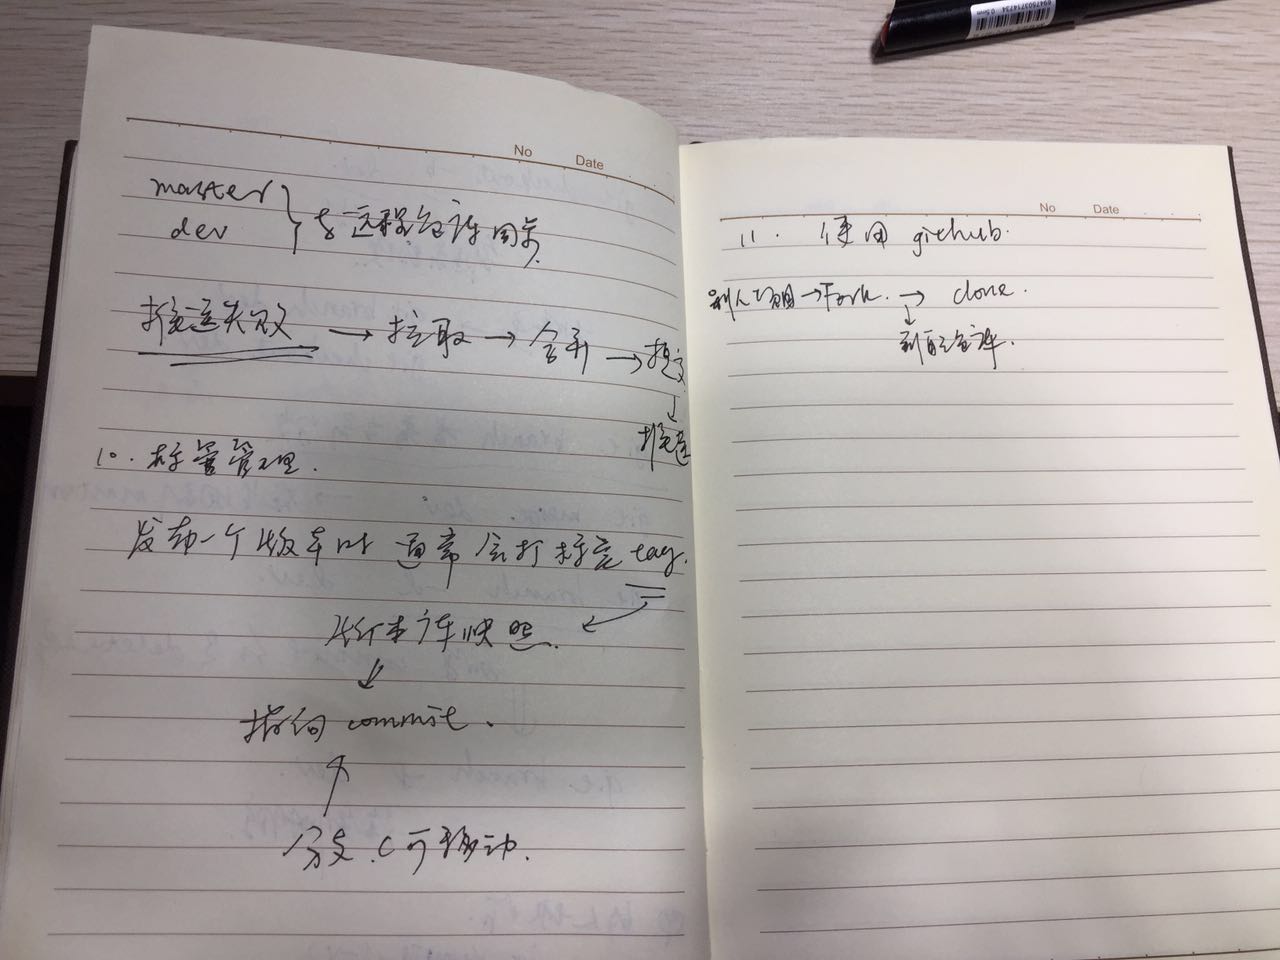 No Date
master
dev } 与远程仓库同步
推送失败 → 拉取 → 合并 → 提交
↓
推送
10. 标签管理.
发布一个版本时 通常会打标签 tag.
版本库快照.
指向 commit.
分支.(可移动.
No Date
11. 使用 github.
别人项目 → Fork. → clone.
↓
到自己仓库.
6947503714734 0.5mm